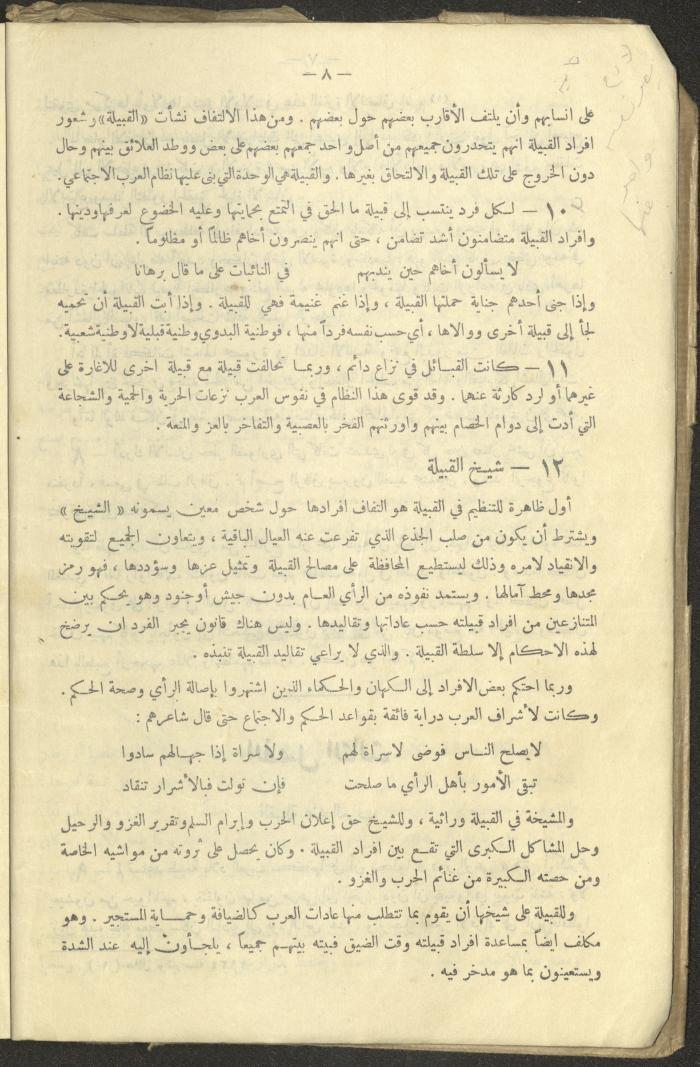 — ٨ —
على انسابهم وأن يلتف الأقارب بعضهم حول بعضهم . ومن هذا الالتفاف نشأت «القبيلة» وشعور
افراد القبيلة انهم يتحدرون جميعهم من أصل واحد جمعهم بعضهم على بعض ووطد العلائق بينهم وحال
دون الخروج على تلك القبيلة والالتحاق بغيرها . والقبيلة هي الوحدة التي بنى عليها نظام العرب الاجتماعي.
١٠ — لكل فرد ينتسب إلى قبيلة ما الحق في التمتع بحمايتها وعليه الخضوع لعرفها ودينها .
وافراد القبيلة متضامنون أشد تضامن ، حتى انهم ينصرون أخاهم ظالماً أو مظلوماً .
لا يسألون أخاهم حين يندبهم في النائبات على ما قال برهانا
وإذا جنى أحدهم جناية حملتها القبيلة ، وإذا غنم غنيمة فهي للقبيلة . وإذا أبت القبيلة أن تحميه
لجأ إلى قبيلة أخرى ووالاها ، أي حسب نفسه فرداً منها ، فوطنية البدوي وطنية قبلية لا وطنية شعبية.
١١ — كانت القبائل في نزاع دائم ، وربما تحالفت قبيلة مع قبيلة اخرى للاغارة على
غيرهما أو لرد كارثة عنهما . وقد قوى هذا النظام في نفوس العرب نزعات الحرية والحمية والشجاعة
التي أدت إلى دوام الخصام بينهم واورثتهم الفخر بالعصبية والتفاخر بالعز والمنعة .
١٢ — شيخ القبيلة
أول ظاهرة للتنظيم في القبيلة هو التفاف افرادها حول شخص معين يسمونه « الشيخ »
ويشترط أن يكون من صلب الجذع الذي تفرعت عنه العيال الباقية ، ويتعاون الجميع لتقويته
والانقياد لامره وذلك ليستطيع المحافظة على مصالح القبيلة وتمثيل عزها وسؤددها ، فهو رمز
مجدها ومحط آمالها . ويستمد نفوذه من الرأي العام بدون جيش أو جنود وهو يحكم بين
المتنازعين من افراد قبيلته حسب عاداتها وتقاليدها . وليس هناك قانون يجبر الفرد ان يرضخ
لهذه الاحكام إلا سلطة القبيلة . والذي لا يراعي تقاليد القبيلة تنبذه .
وربما احتكم بعض الافراد إلى الكهان والحكماء الذين اشتهروا بإصالة الرأي وصحة الحكم .
وكانت لأشراف العرب دراية فائقة بقواعد الحكم والاجتماع حتى قال شاعرهم :
لا يصلح الناس فوضى لا سراة لهم ولا سراة إذا جهالهم سادوا
تبقى الأمور بأهل الرأي ما صلحت فإن تولت فبالأشرار تنقاد
والمشيخة في القبيلة وراثية ، وللشيخ حق إعلان الحرب وإبرام السلم وتقرير الغزو والرحيل
وحل المشاكل الكبرى التي تقع بين افراد القبيلة . وكان يحصل على ثروته من مواشيه الخاصة
ومن حصته الكبيرة من غنائم الحرب والغزو .
وللقبيلة على شيخها أن يقوم بما تتطلب منها عادات العرب كالضيافة وحماية المستجير . وهو
مكلف ايضاً بمساعدة افراد قبيلته وقت الضيق فبيته بيتهم جميعاً ، يلجأون إليه عند الشدة
ويستعينون بما هو مدخر فيه .